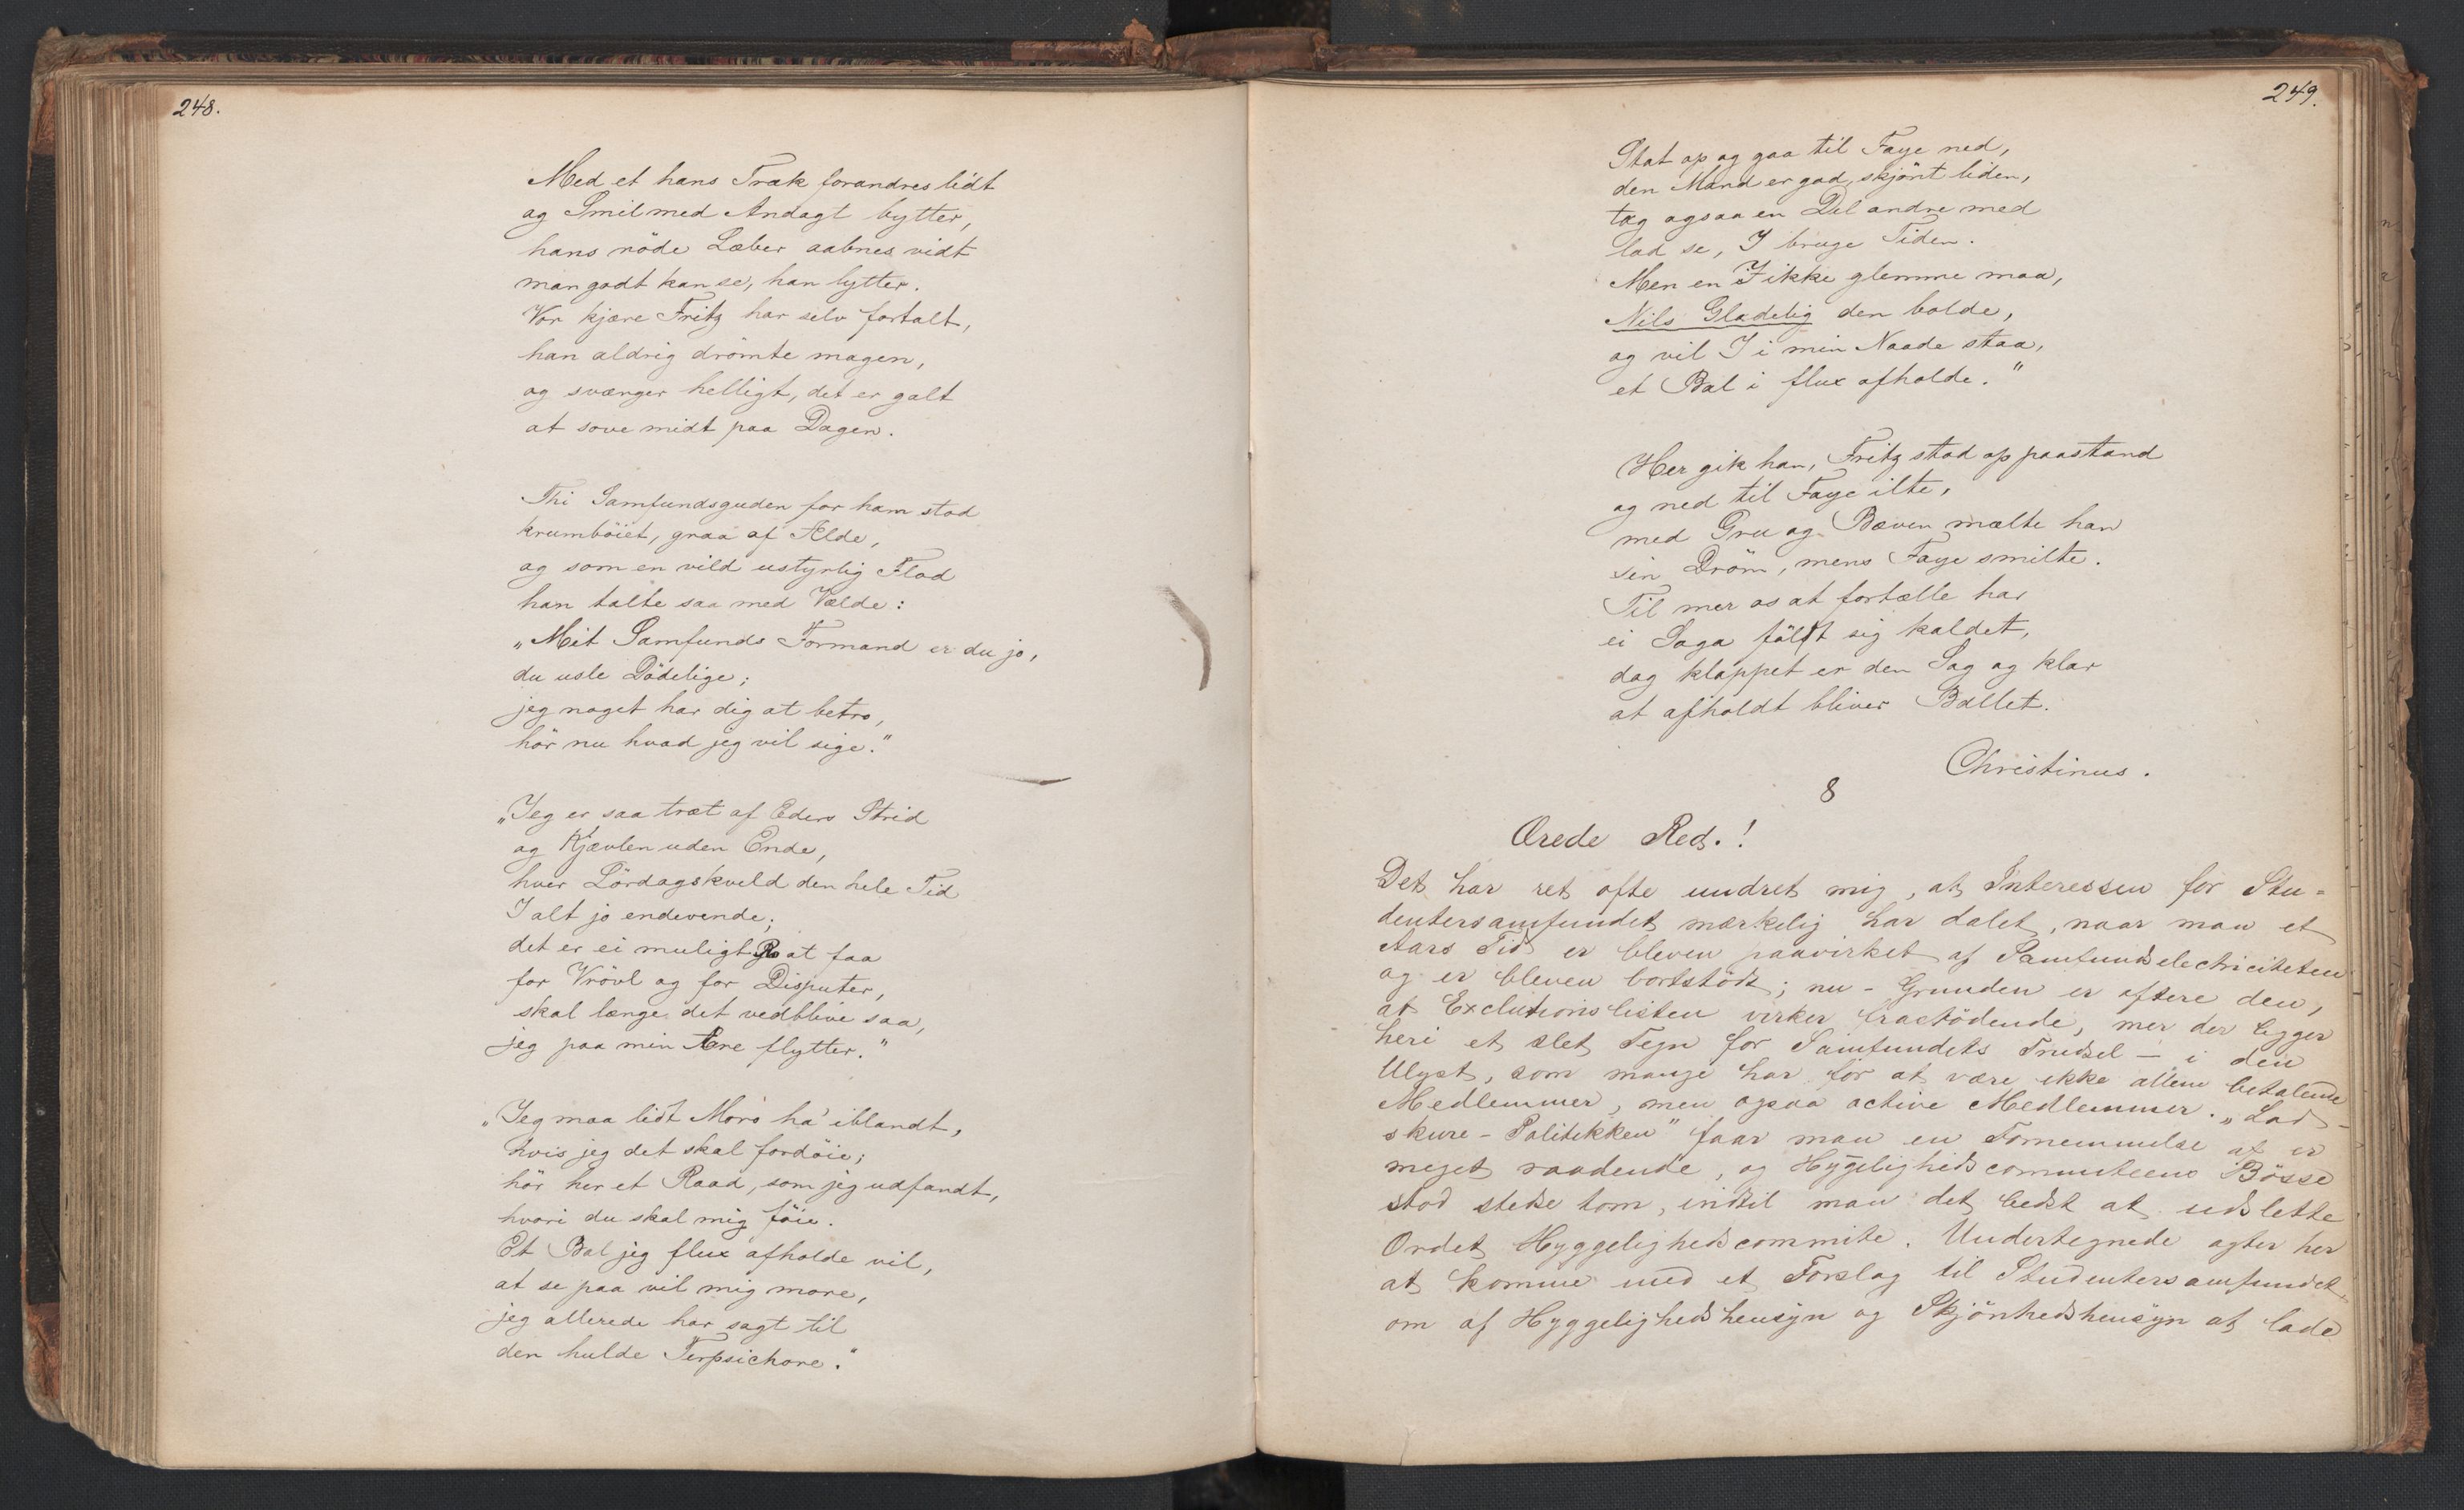 248.
Med et hans Træk forandres lidt
og Smil med Andagt bytter,
hans röde Læber aabnes vidt
man godt kan se, han lytter.
Vor kjære Fritz har selv fortalt,
han aldrig drömte magen,
og sværger helligt, det er galt
at sove midt paa Dagen.
Thi Samfundsguden for ham stod
krumböiet, graa af Ælde,
og som en vild ustyrlig Flod
han talte saa med Vælde:
„Mit Samfunds Formand er du jo,
du usle Dödelige;
jeg noget har dig at betro,
hör nu hvad jeg vil sige."
„Jeg er saa træt af Eders Strid
og Kjævlen uden Ende,
hver Lördagskveld den hele Tid
I alt jo endevende;
det er ei muligt Ro at faa
for Vrövl og for Disputer,
skal længe det vedblive saa,
jeg paa min Ære flytter."
„Jeg maa lidt Moro ha' iblandt,
hvis jeg det skal fordöie;
hör her et Raad, som jeg udfandt,
hvori du skal mig föie.
Et Bal jeg flux afholde vil,
at se paa vil mig more,
jeg allerede har sagt til
den hulde Terpsichore."
249.
Stat op og gaa til Faye ned,
den Mand er god, skjönt liden,
tag ogsaa en Del andre med
lad se, I bruge Tiden.
Men en I ikke glemme maa,
Nils Gladelig den bolde,
og vil I i min Naade staa,
et Bal i flux afholde."
Her gik han, Fritz stod op paastand
og ned til Faye ilte,
med Gru og Bæven mælte han
sin Dröm, mens Faye smilte.
Til mer os at fortælle har
ei Saga fölt sig kaldet,
dog klappet er den Sag og klar
at afholdt bliver Ballet.
Christinus.
8
Ærede Red.!
Det har ret ofte undret mig, at Interessen for Stu-
dentersamfundet mærkelig har dalet, naar man et
Aars Tid er bleven paavirket af Samfundselectriciteten
og er bleven bortstödt; nu - Grunden er oftere den,
at Exclutionslisten virker frastödende, mer der ligger
heri et slet Tegn for Samfundets Trudsel – i den
Ulyst, som mange har for at være ikke allene betalende
Medlemmer, men ogsaa active Medlemmer. „Lad-
skure-Politikken" faar man en Fornemmelse af er
meget raadende, og Hyggelighedscommiteens Bösse
stod stedse tom, indtil man det bedst at udslette
Ordet Hyggelighedscommite. Undertegnede agter her
at komme med et Forslag til Studentersamfundet
om af Hyggelighedshensyn og Skjönhedshensyn at lade